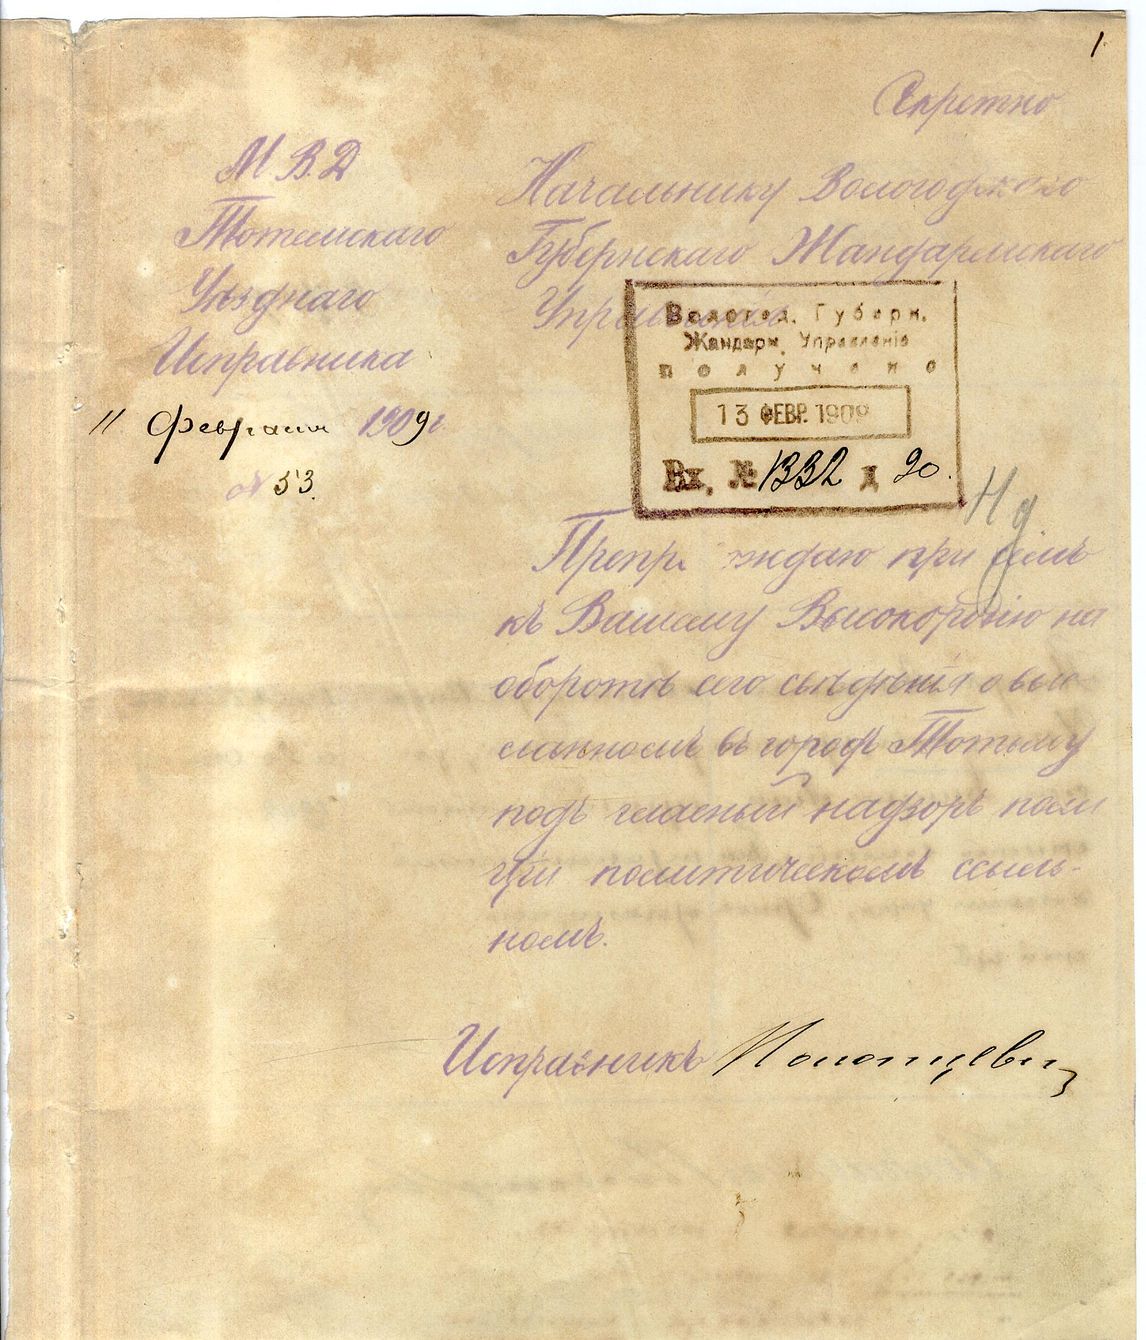 1
Секретно
М.В.Д
Тотемскаго
Уѣзднаго
Исправника
11 Февраля 1909 г.
№ 53.
Начальнику Вологодскаго
Губернскаго Жандармскаго
Управленія
Вологод. Губерн.
Жандарм. Управленіе
получено
13 ФЕВР. 1909
Вх. № 1332 д 20.
Препровждаю при семъ
къ Вашему Высокородію на
оборотѣ сего свѣдѣнія о вы-
сланномъ въ городъ Тотьму
подъ гласный надзоръ поли
ціи политическомъ ссыль-
номъ.
Исправникъ